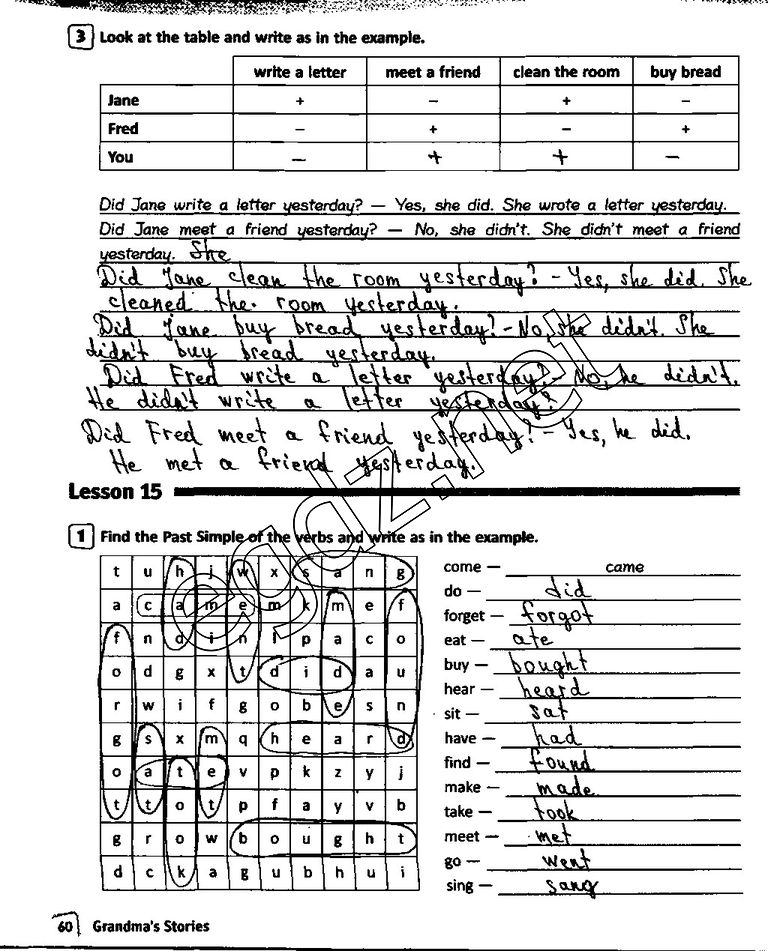 3 Look at the table and write as in the example.
write a letter meet a friend clean the room buy bread
Jane + – + –
Fred – + – +
You – + + –
Did Jane write a letter yesterday? — Yes, she did. She wrote a letter yesterday.
Did Jane meet a friend yesterday? — No, she didn't. She didn't meet a friend
yesterday. She
Did Jane clean the room yesterday? - Yes, she did. She
cleaned the room yesterday.
Did Jane buy bread yesterday? - No, she didn't. She
didn't buy bread yesterday.
Did Fred write a letter yesterday? - No, he didn't.
He didn't write a letter yesterday?
Did Fred meet a friend yesterday? - Yes, he did.
He met a friend yesterday.
Lesson 15
1 Find the Past Simple of the verbs and write as in the example.
t u h j w x s a n g
a c a m e m k m e f
f n d i n l p a c o
o d g x t d i d a u
r w i f g o b e s n
g s x m q h e a r d
o a t e v p k z y j
t t o t p f a y v b
g r o w b o u g h t
d c k a g u b h u i
come — came
do — did
forget — forgot
eat — ate
buy — bought
hear — heard
sit — sat
have — had
find — found
make — made
take — took
meet — met
go — went
sing — sang
60 Grandma's Stories
egdz.net